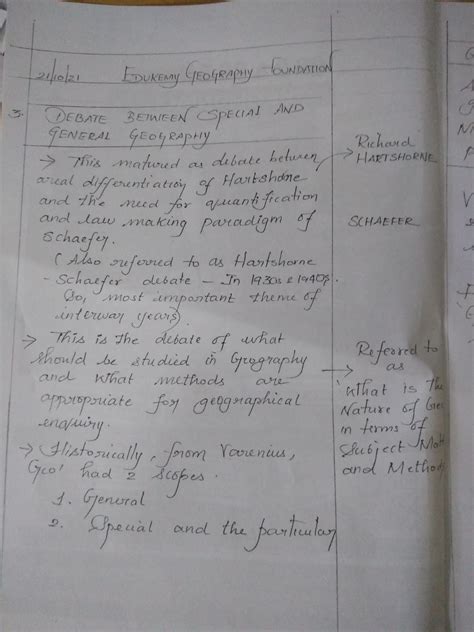 21/10/21 EDUKEMY GEOGRAPHY FOUNDATION
3. DEBATE BETWEEN SPECIAL AND
GENERAL GEOGRAPHY
→ This matured as debate between
areal differentiation of Hartshorne
and the need for quantification
and law making paradigm of
Schaefer.
(Also referred to as Hartshorne
- Schaefer debate - In 1930s & 1940s.
So, most important theme of
interwar years).
→ This is the debate of what
should be studied in Geography
and what methods are
appropriate for geographical
enquiry.
→ Historically, from Varenius,
Geo' had 2 scopes.
1. General
2. Special and the particular
Richard
HARTSHORNE
SCHAEFER
Referred to
as
'What is The
Nature of Geo
in terms of
Subject Mat
and Method